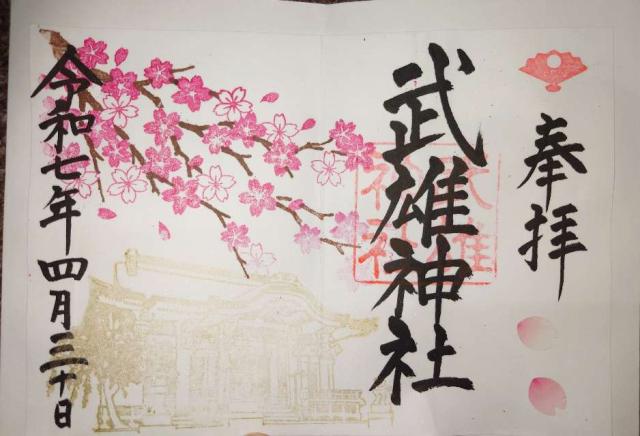 奉拝
武雄神社
武雄神社
令和七年四月三十日